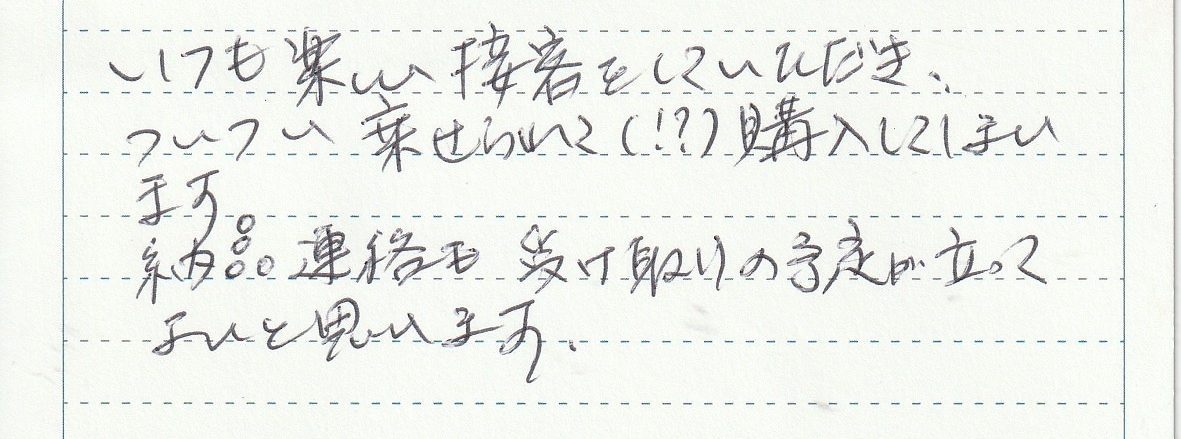 いつも楽しい接客をしていただき、
ついつい乗せられて(!?)購入してしまい
ます。
納品連絡も受け取りの予定が立って
よいと思います。